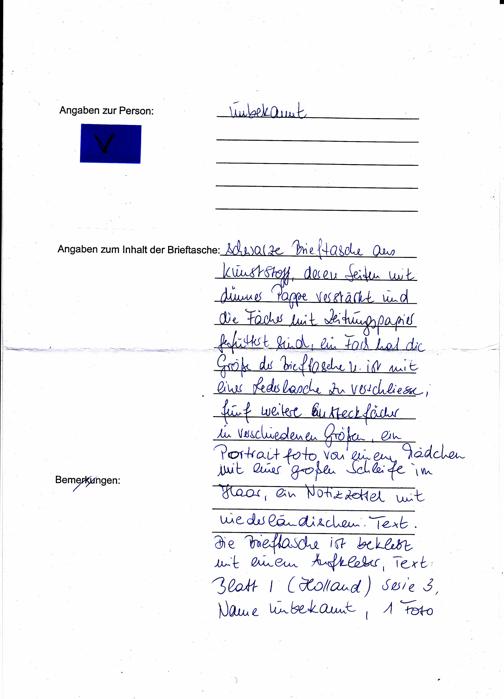 Angaben zur Person: Unbekannt
Angaben zum Inhalt der Brieftasche: schwarze Brieftasche aus
Kunststoff, deren Seiten mit
dünner Pappe verstärkt und
die Fächer mit Zeitungspapier
gefüttert sind, ein Fach hat die
Größe der Brieftasche u. ist mit
einer Lederlasche zu verschließen;
fünf weitere Einsteckfächer
in verschiedenen Größen, ein
Portraitfoto von einem Mädchen
mit einer großen Schleife im
Bemerkungen: Haar, ein Notizzettel mit
niederländischem Text.
Die Brieftasche ist beklebt
mit einem Aufkleber, Text:
Blatt 1 (Holland) Serie 3,
Name Unbekannt, 1 Foto